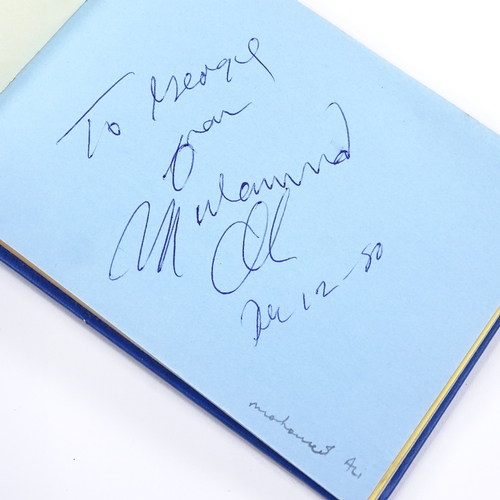 To George
from
Muhammad
Ali
Dec 12-80
Mohamed Ali